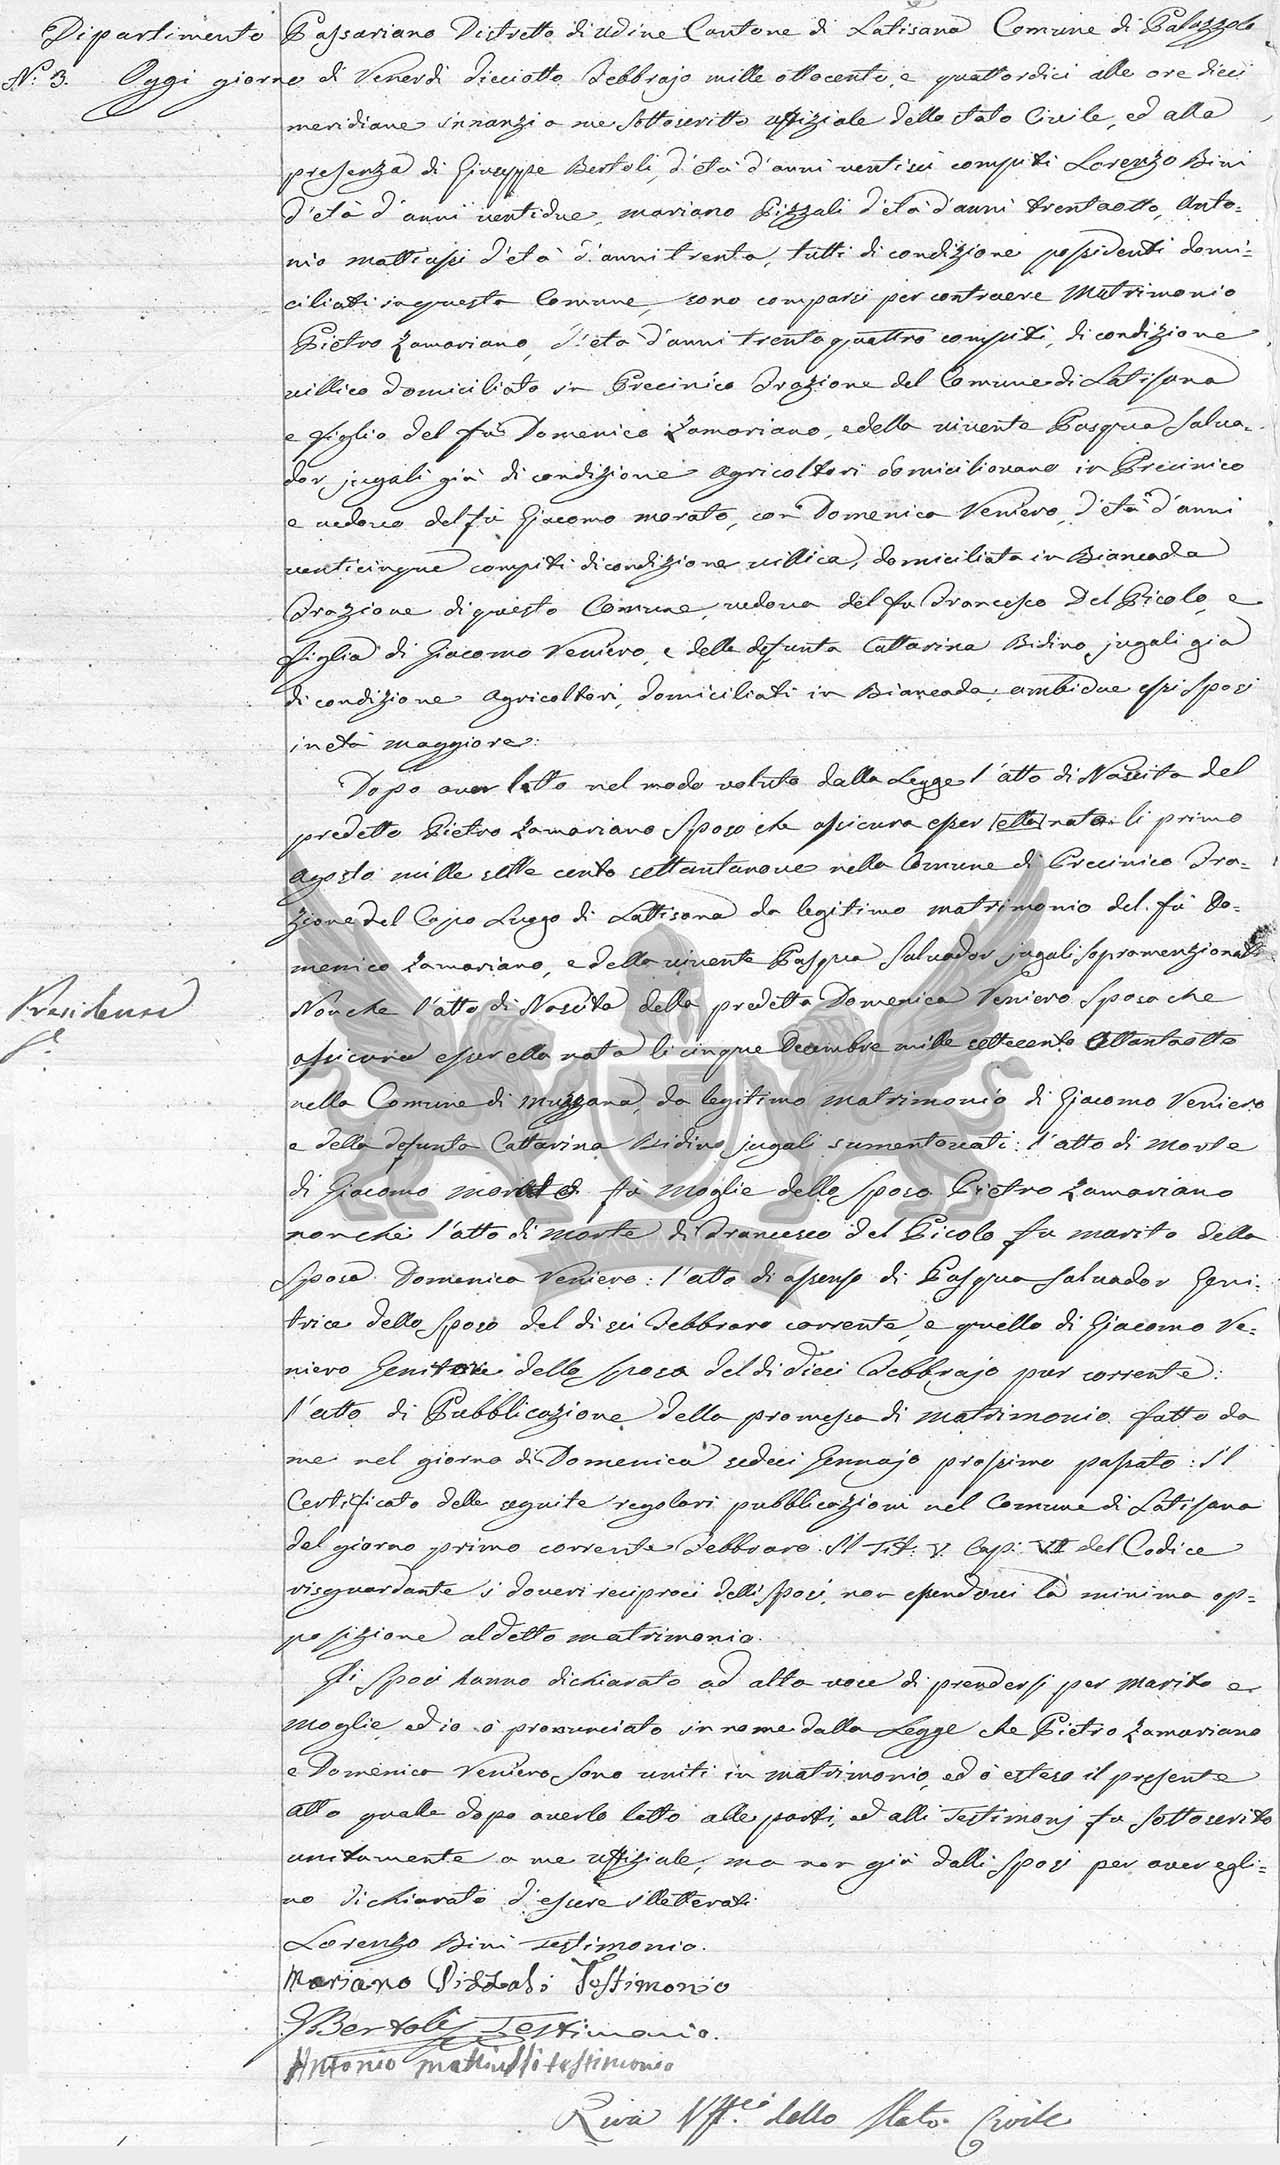 Dipartimento Passariano Distretto di Udine Cantone di Latisana Comune di Palazzolo
N.° 3. Oggi giorno di Venerdi dicciotto Febbrajo mille ottocento, e quattordici alle ore dieci
meridiane innanzi a me sottoscritto uffiziale dello stato Civile, ed alla
presenza di Giuseppe Bertoli, d'età d'anni ventisei compiti Lorenzo Bini
d'età d'anni ventidue, Mariano Pizzali d'età d'anni trentaotto, Anto=
nio Mattiussi d'età d'anni trenta, tutti di condizione possidenti domi=
ciliati in questa Comune, sono comparsi per contraere Matrimonio
Pietro Zamariano, d'età d'anni trentaquattro compiti, di condizione
villico domiciliato in Precinico Frazione del Comune di Latisana
e figlio del fù Domenico Zamariano, e della vivente Pasqua Salva=
dor, jugali già di condizione Agricoltori domiciliavano in Precinico
e vedovo del fù Giacomo Morato, con Domenica Veniero, d'età d'anni
venticinque compiti di condizione villica, domiciliata in Biancada
Frazione di questo Comune, vedova del fu Francesco Del Picolo, e
figlia di Giacomo Veniero, e della defunta Cattarina Bidino jugali già
di condizione Agricoltori, domiciliati in Biancada, ambidue essi sposi
in età maggiore:
Dopo aver letto nel modo voluto dalla Legge l'atto di Nascita del
predetto Pietro Zamariano Sposo che assicura esser ella nato li primo
Agosto mille sette cento settantanove nella Comune di Precinico Fra=
zione del Capo Luogo di Lattisana da legitimo matrimonio del fù Do=
menico Zamariano, e della vivente Pasqua Salvador jugali sopramenzionati
Nonche l'atto di Nascita della predetta Domenica Veniero Sposa che
assicura esser ella nata li cinque Decembre mille settecento ottantaotto
nella Comune di Muzzana, da legitimo matrimonio di Giacomo Veniero
e della defunta Cattarina Bidino jugali sumentovati: l'atto di Morte
di Giacomo fù Moglie dello Sposo Pietro Zamariano
nonchè l'atto di Morte di Francesco del Picolo fu marito della
Sposa Domenica Veniero: l'atto di assenso di Pasqua Salvador Geni=
trice dello Sposo del di sei Febbraro corrente, e quello di Giacomo Ve=
niero Genitore della Sposa del di dieci Febbrajo pur corrente:
l'atto di Pubblicazione della promessa di matrimonio fatto da
me nel giorno di Domenica sedeci Gennajo prossimo passato: Il
Certificato delle seguite regolari pubblicazioni nel Comune di Latisana
del giorno primo corrente Febbraro. Il Tit: V. Cap: VI del Codice
risguardante i doveri reciproci delli Sposi, non essendovi la minima op=
posizione al detto matrimonio.
Gli Sposi hanno dichiarato ad alta voce di prendersi per Marito e
Moglie, ed io ò pronunciato in nome dalla Legge che Pietro Zamariano
e Domenica Veniero sono uniti in matrimonio, ed ò esteso il presente
atto qualle dopo averlo letto alle parti, ed alli Testimonj fu Sottoscritto
unitamente a me Uffiziale, ma non già dalli Sposi per aver egli=
no dichiarato d'essere illetterati
Presidenza
Lorenzo Bini Testimonio.
Mariano Pizzali Testimonio
GBertoli Testimonio.
Antonio Mattiussi testimonio
Riva Uff.le dello Stato Civile
ZAMARIAN